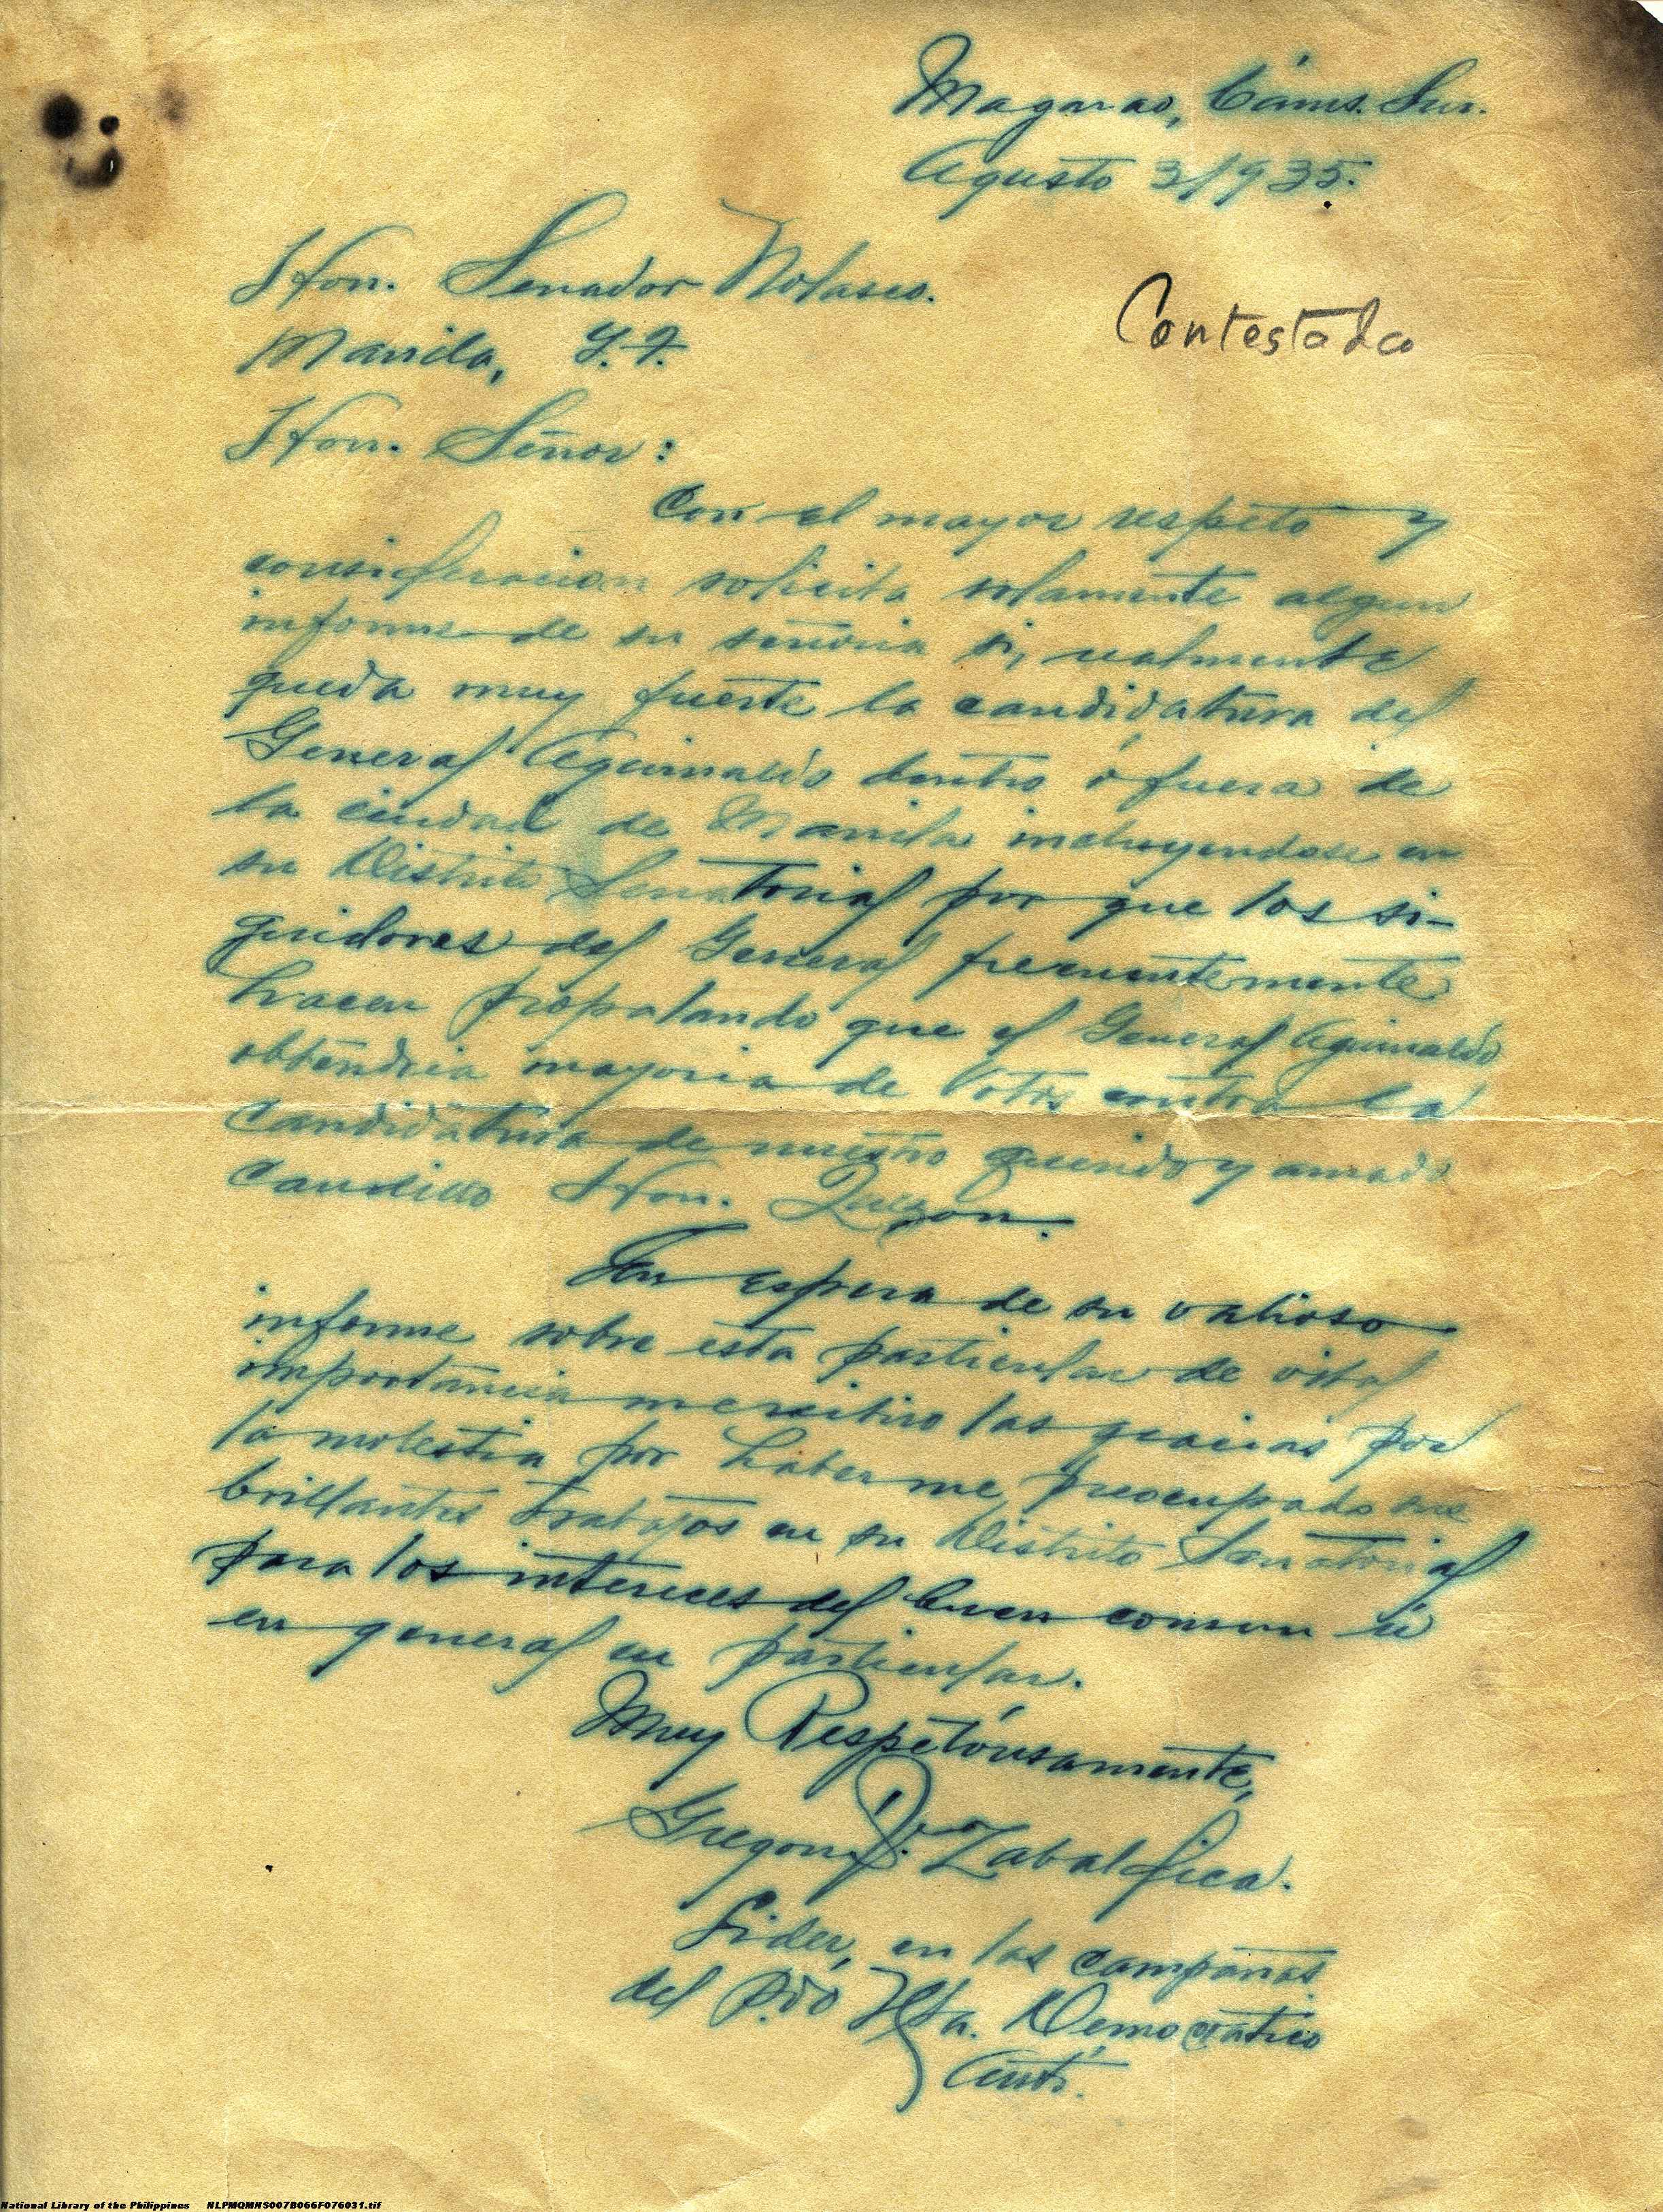 Magarao, Cáms. Sur.
Agusto 3/1935.
Hon. Senador Nolasco.
Contestado
Manila, I. F.
Hon. Señor:
Con el mayor respeto y
consideracion solicita solamente algun
informe de su señoria si, realmente
queda muy fuerte la candidatura del
General Aguinaldo dentro ó fuera de
la ciudad de Manila incluyendose en
su Distrito Senatorial por que los si-
guidores del General frecuentemente
hacen propalando que el General Aguinaldo
obtendria mayoria de votos contra la
candidatura de nuestro querido y amado
caudillo Hon. Quezon.
En espera de su valioso
informe sobre esta particular de vital
importancia las gracias por
la molestia por haberme preocupado sus
brillantes trabajos en su Distrito Senatorial
para los intereces del buen comun ú
en general en particular.
Muy Respetóusamente,
Zabal
Lider, en las campañas
del Pdo Democratico
Anti.
National Library of the Philippines NLPMQMNS007B066F076031.tif